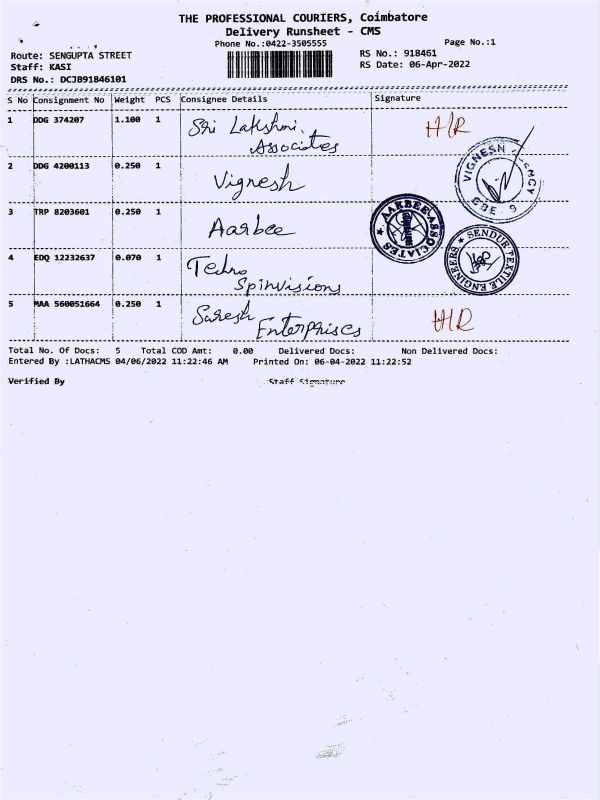 THE PROFESSIONAL COURIERS, Coimbatore
Delivery Runsheet - CMS
Phone No.:0422-3505555 Page No.:1
Route: SENGUPTA STREET RS No.: 918461
Staff: KASI RS Date: 06-Apr-2022
DRS No.: DCJB91846101
S No Consignment No Weight PCS Consignee Details Signature
1 DDG 374207 1.100 1 Sri Lakshmi. H/R
Associates
2 DDG 4200113 0.250 1 Vignesh
VIGNESH AGENCY CBE - 9
3 TRP 8203601 0.250 1 Aarbee
AARBEE ASSOCIATES
4 EDQ 12232637 0.070 1 Techno
Spinvisions
SENDUR TEXTILE ENGINEERS
5 MAA 560051664 0.250 1 Suresh
Enterprises
Total No. Of Docs: 5 Total COD Amt: 0.00 Delivered Docs: Non Delivered Docs:
Entered By :LATHACMS 04/06/2022 11:22:46 AM Printed On: 06-04-2022 11:22:52
Verified By Staff Signature